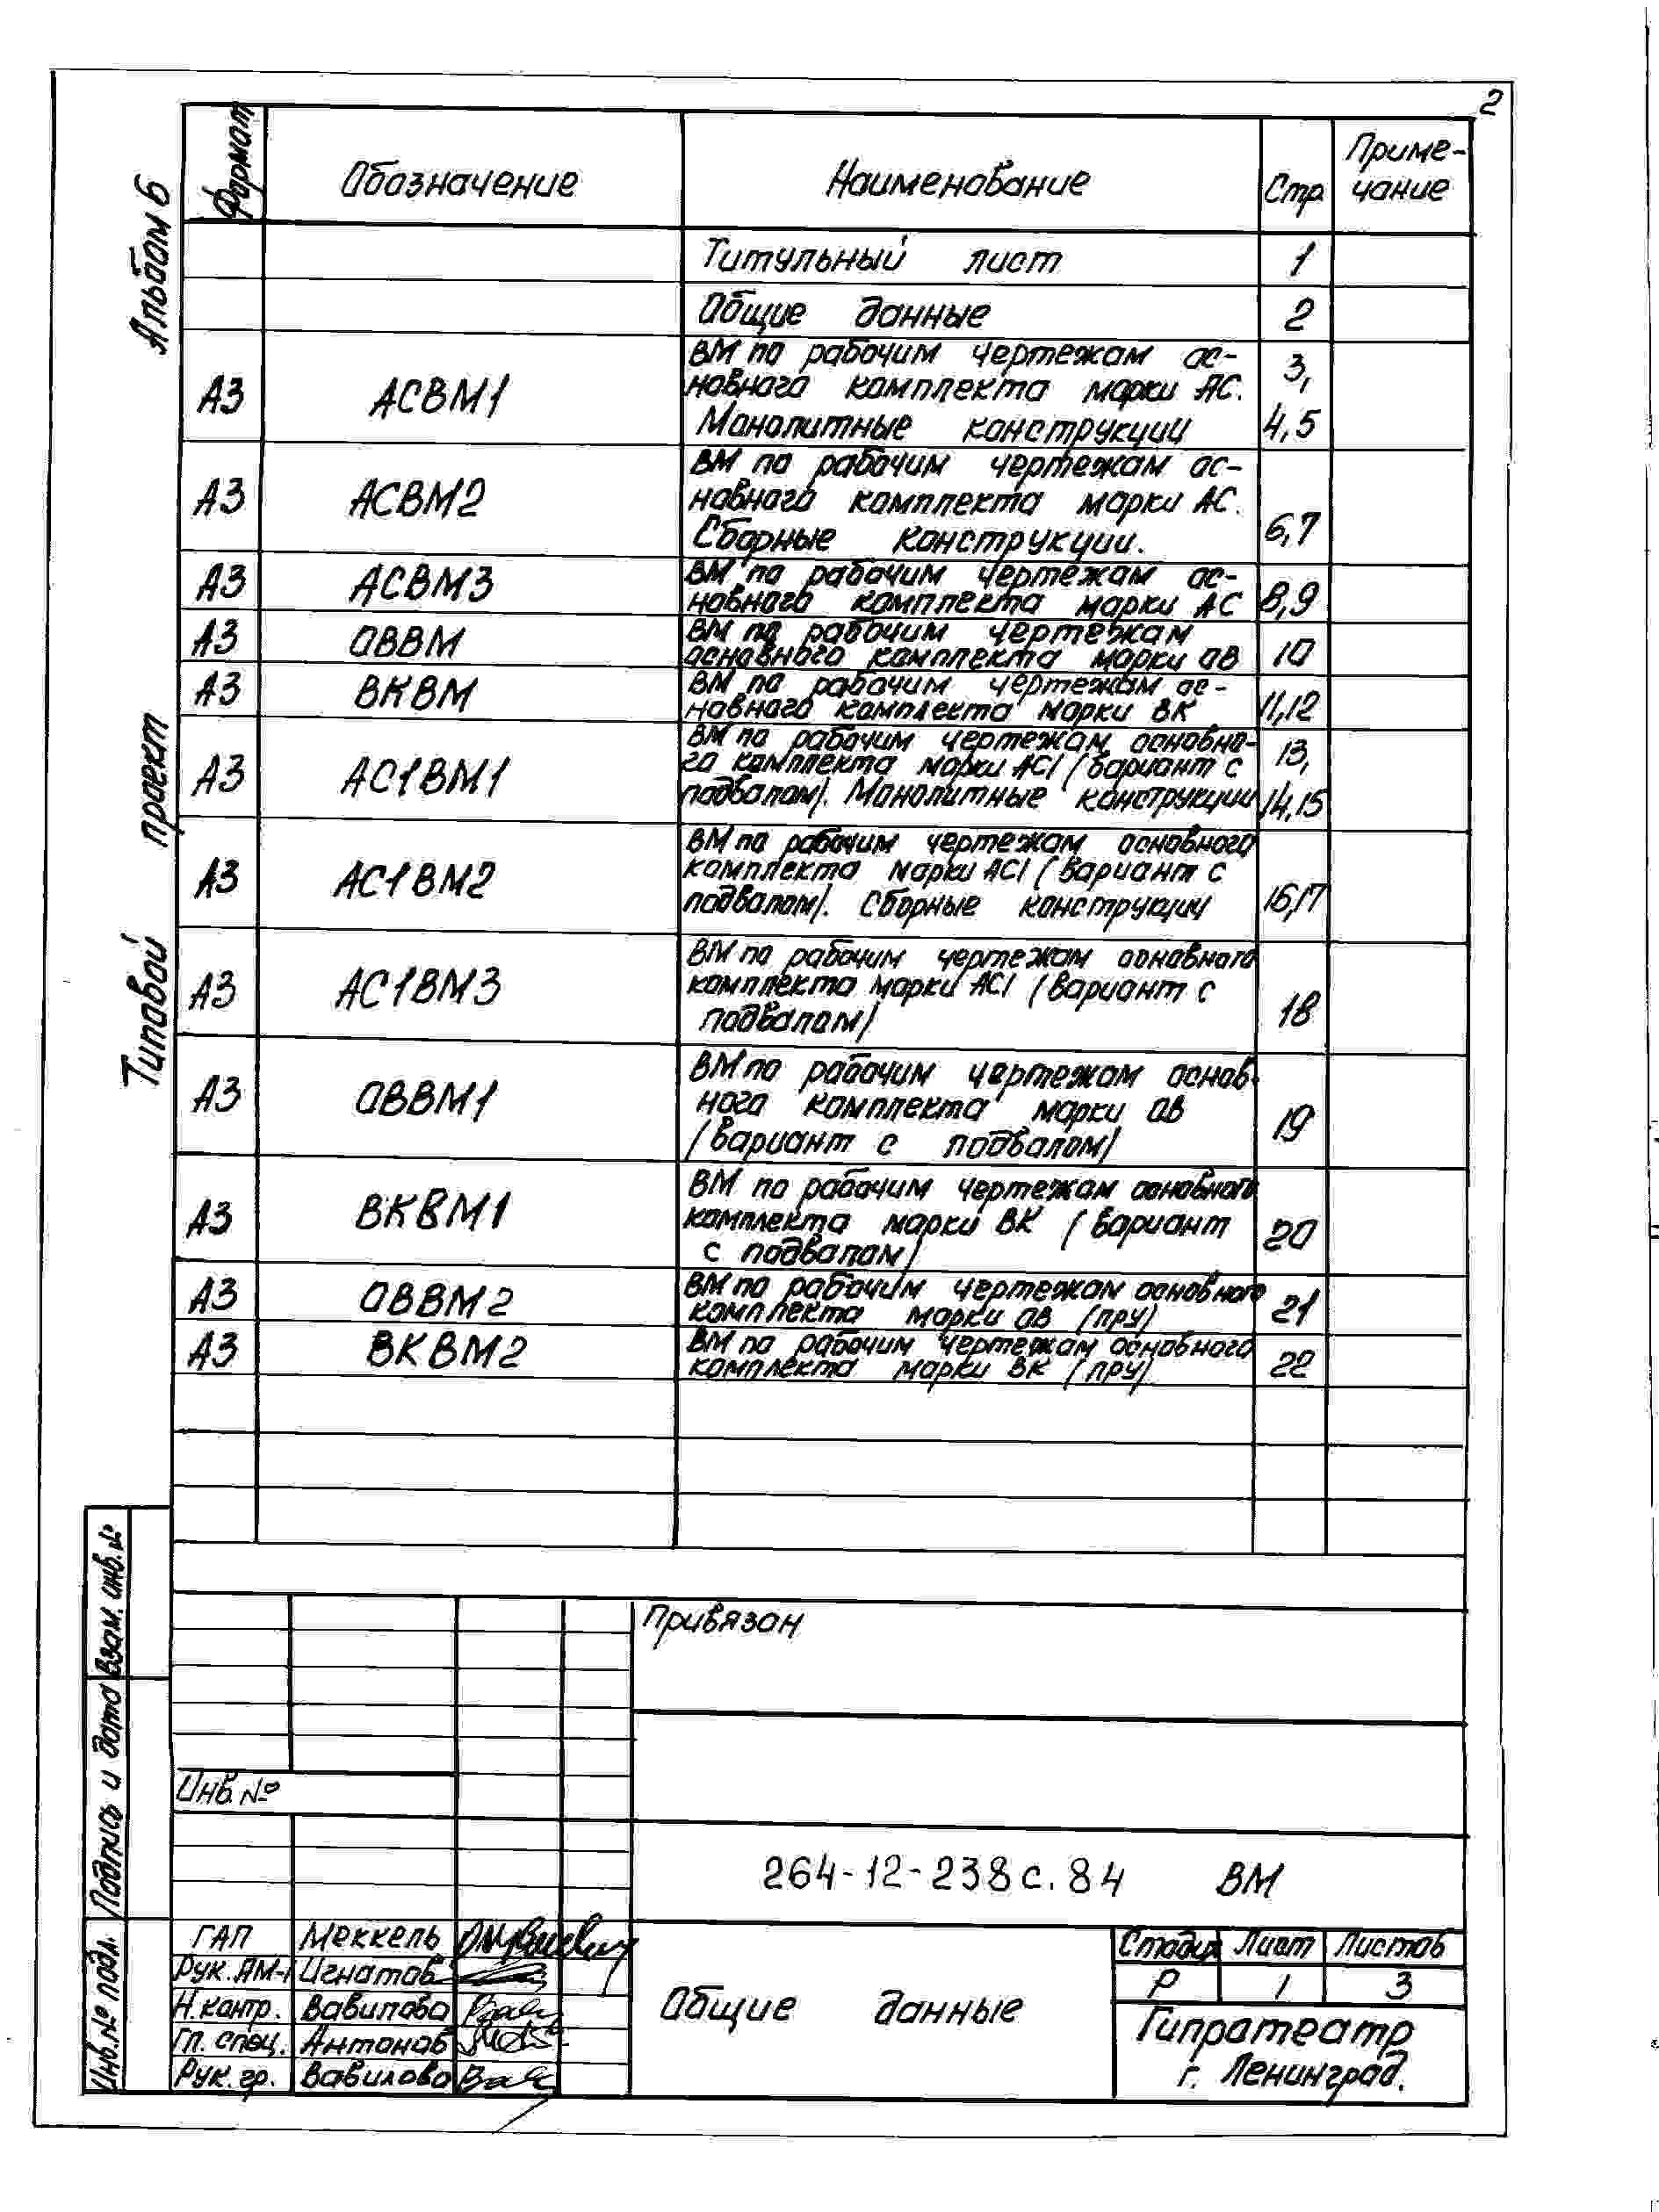 2
Альбом 6
Типовой проект
Формат
Обозначение
Наименование
Стр.
Приме-
чание
Титульный лист
1
Общие данные
2
А3
АСВМ1
ВМ по рабочим чертежам ос-
новного комплекта марки АС.
Монолитные конструкции
3,
4,5
А3
АСВМ2
ВМ по рабочим чертежам ос-
новного комплекта марки АС.
Сборные конструкции.
6,7
А3
АСВМ3
ВМ по рабочим чертежам ос-
новного комплекта марки АС
8,9
А3
ОВВМ
ВМ по рабочим чертежам
основного комплекта марки ОВ
10
А3
ВКВМ
ВМ по рабочим чертежам ос-
новного комплекта марки ВК
11,12
А3
АС1ВМ1
ВМ по рабочим чертежам основно-
го комплекта марки АС1 (вариант с
подвалом). Монолитные конструкции
13,
14,15
А3
АС1ВМ2
ВМ по рабочим чертежам основного
комплекта марки АС1 (вариант с
подвалом). Сборные конструкции
16,17
А3
АС1ВМ3
ВМ по рабочим чертежам основного
комплекта марки АС1 (вариант с
подвалом)
18
А3
ОВВМ1
ВМ по рабочим чертежам основ-
ного комплекта марки ОВ
(вариант с подвалом)
19
А3
ВКВМ1
ВМ по рабочим чертежам основного
комплекта марки ВК (вариант
с подвалом)
20
А3
ОВВМ2
ВМ по рабочим чертежам основного
комплекта марки ОВ (ПРУ)
21
А3
ВКВМ2
ВМ по рабочим чертежам основного
комплекта марки ВК (ПРУ)
22
Взам. инв. №
Подпись и дата
Инв. № подл.
Привязан
Инв. №
264-12-238с.84 ВМ
ГАП Меккель
Рук. АМ-1 Игнатов
Н. контр. Вавилова
Гл. спец. Антонов
Рук. гр. Вавилова
Общие данные
Стадия Лист Листов
Р 1 3
Гипротеатр
г. Ленинград.